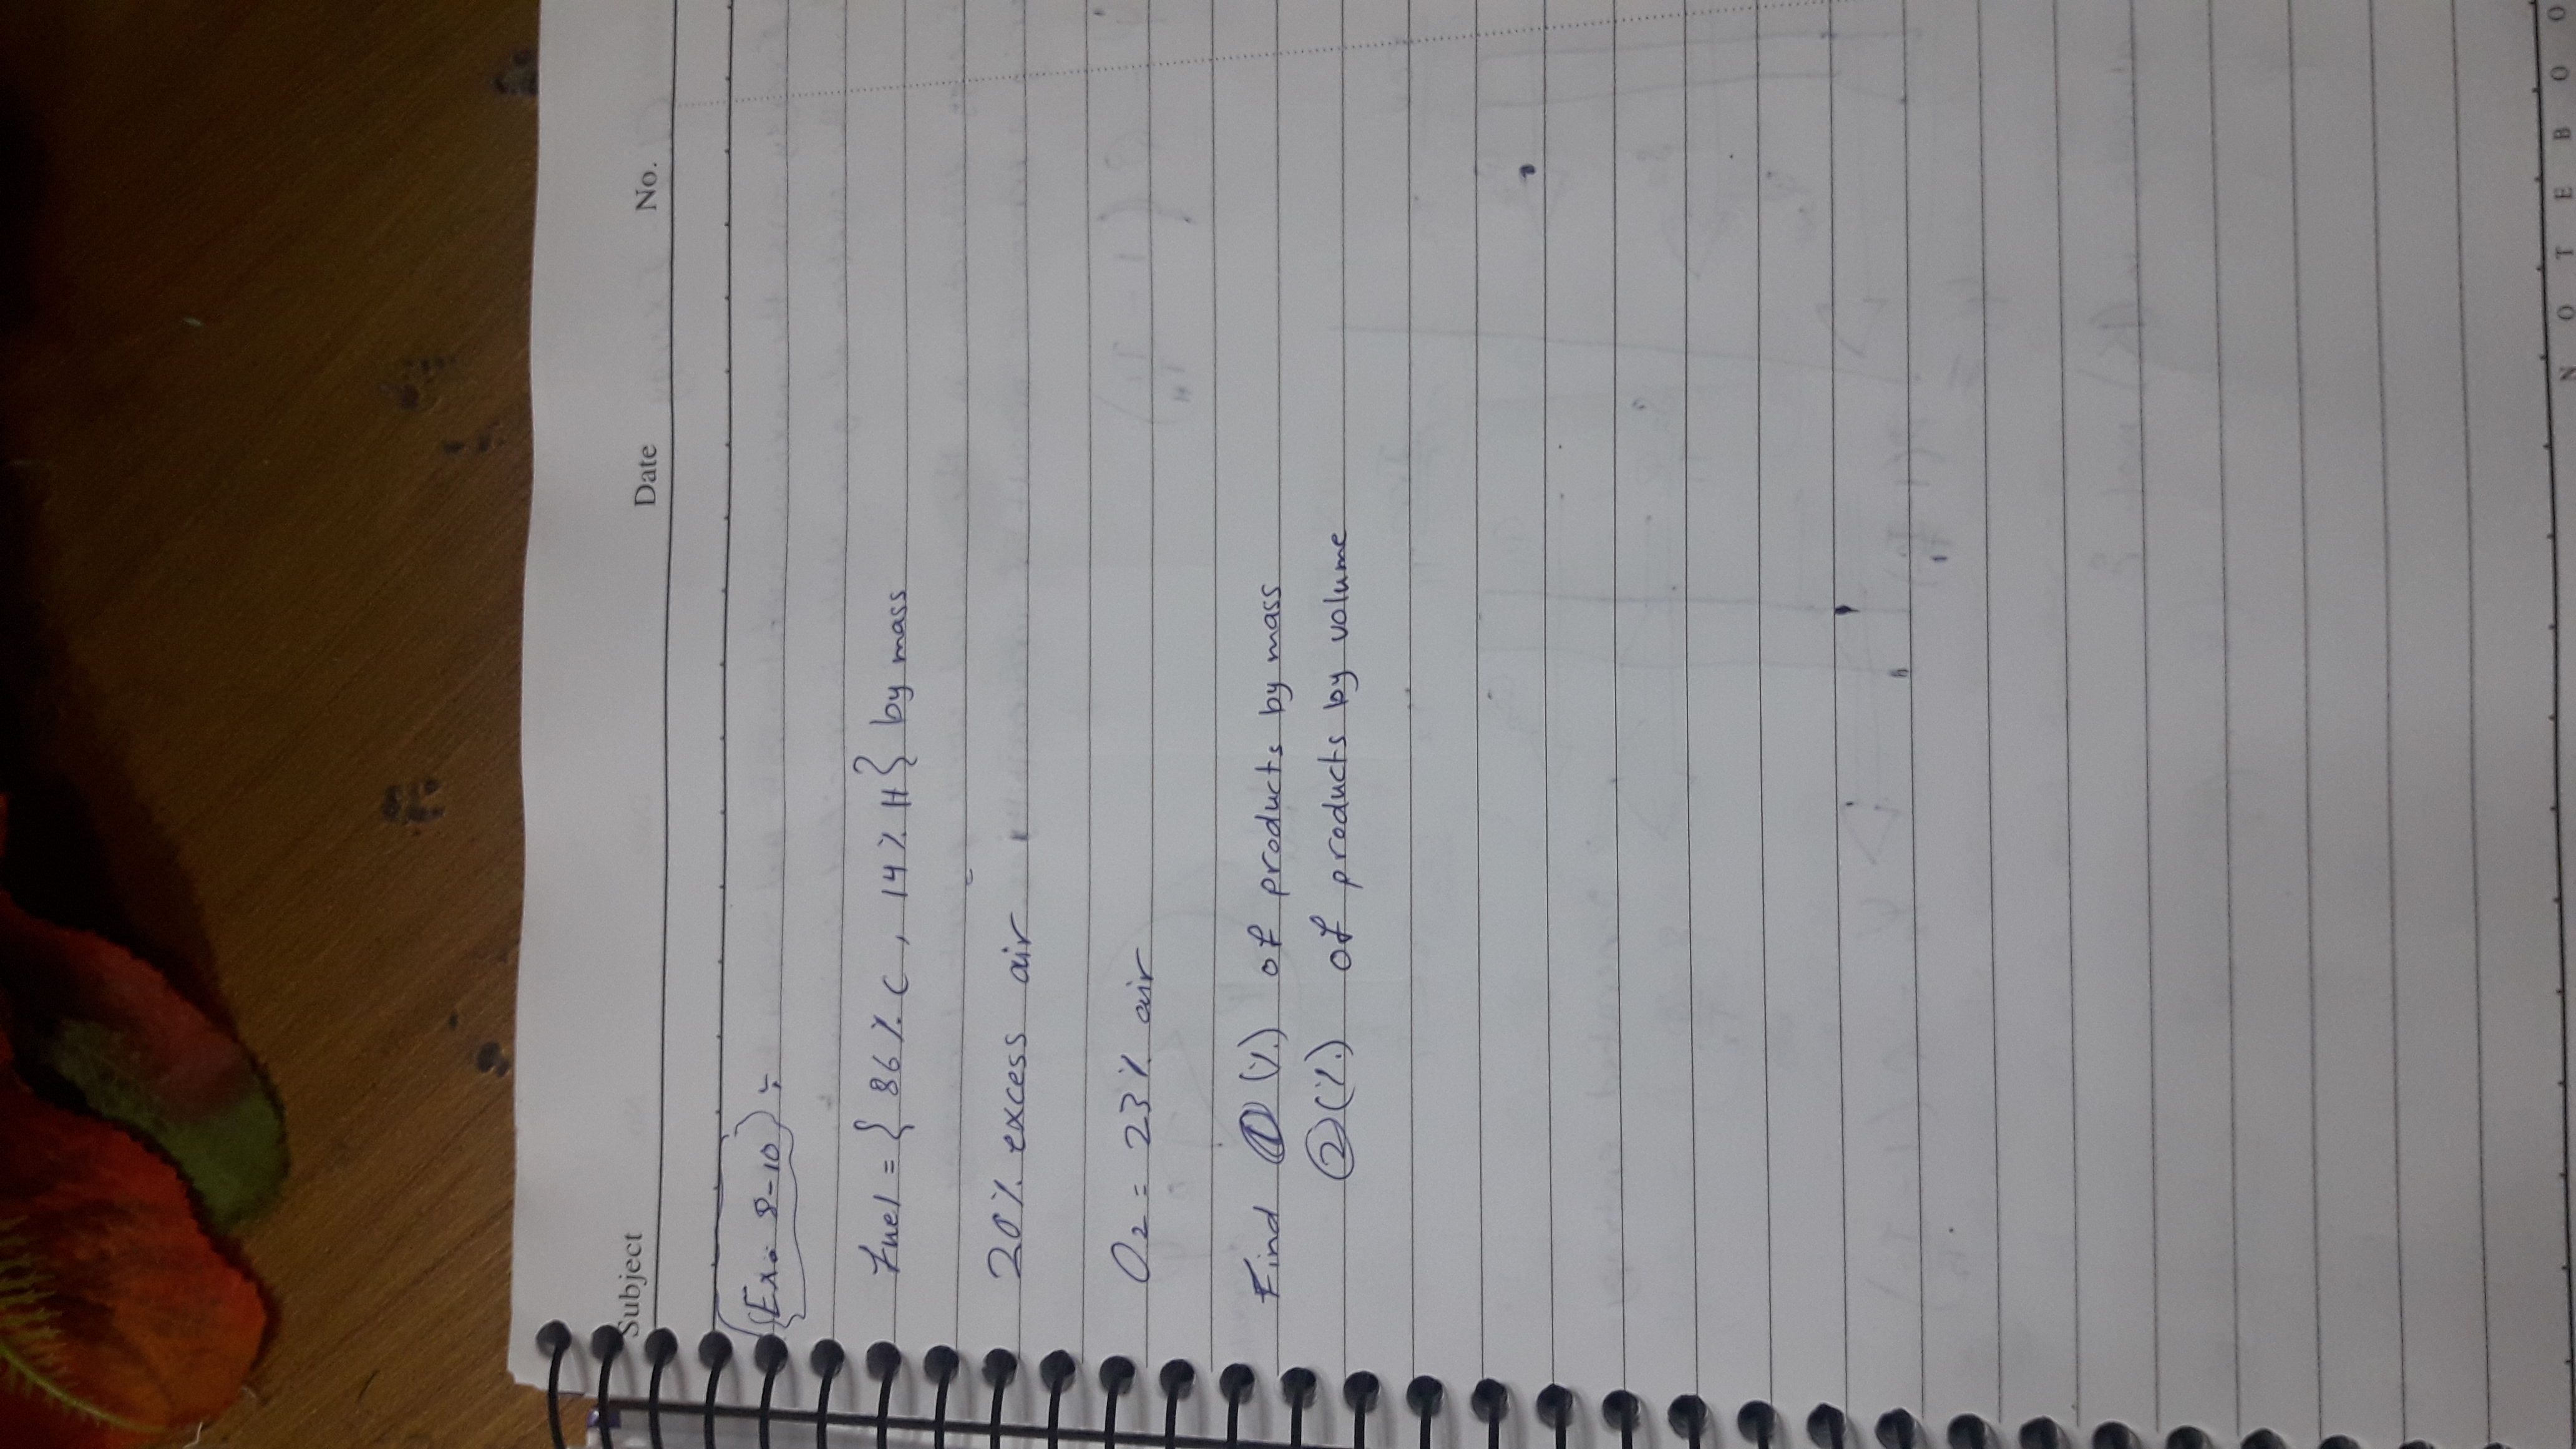 Subject Date No.
{Ex. 8-10}:
Fuel = { 86% C , 14% H } by mass
20% excess air
O2 = 23% air
Find ① (%) of products by mass
② (%) of products by volume
NOTEBOO